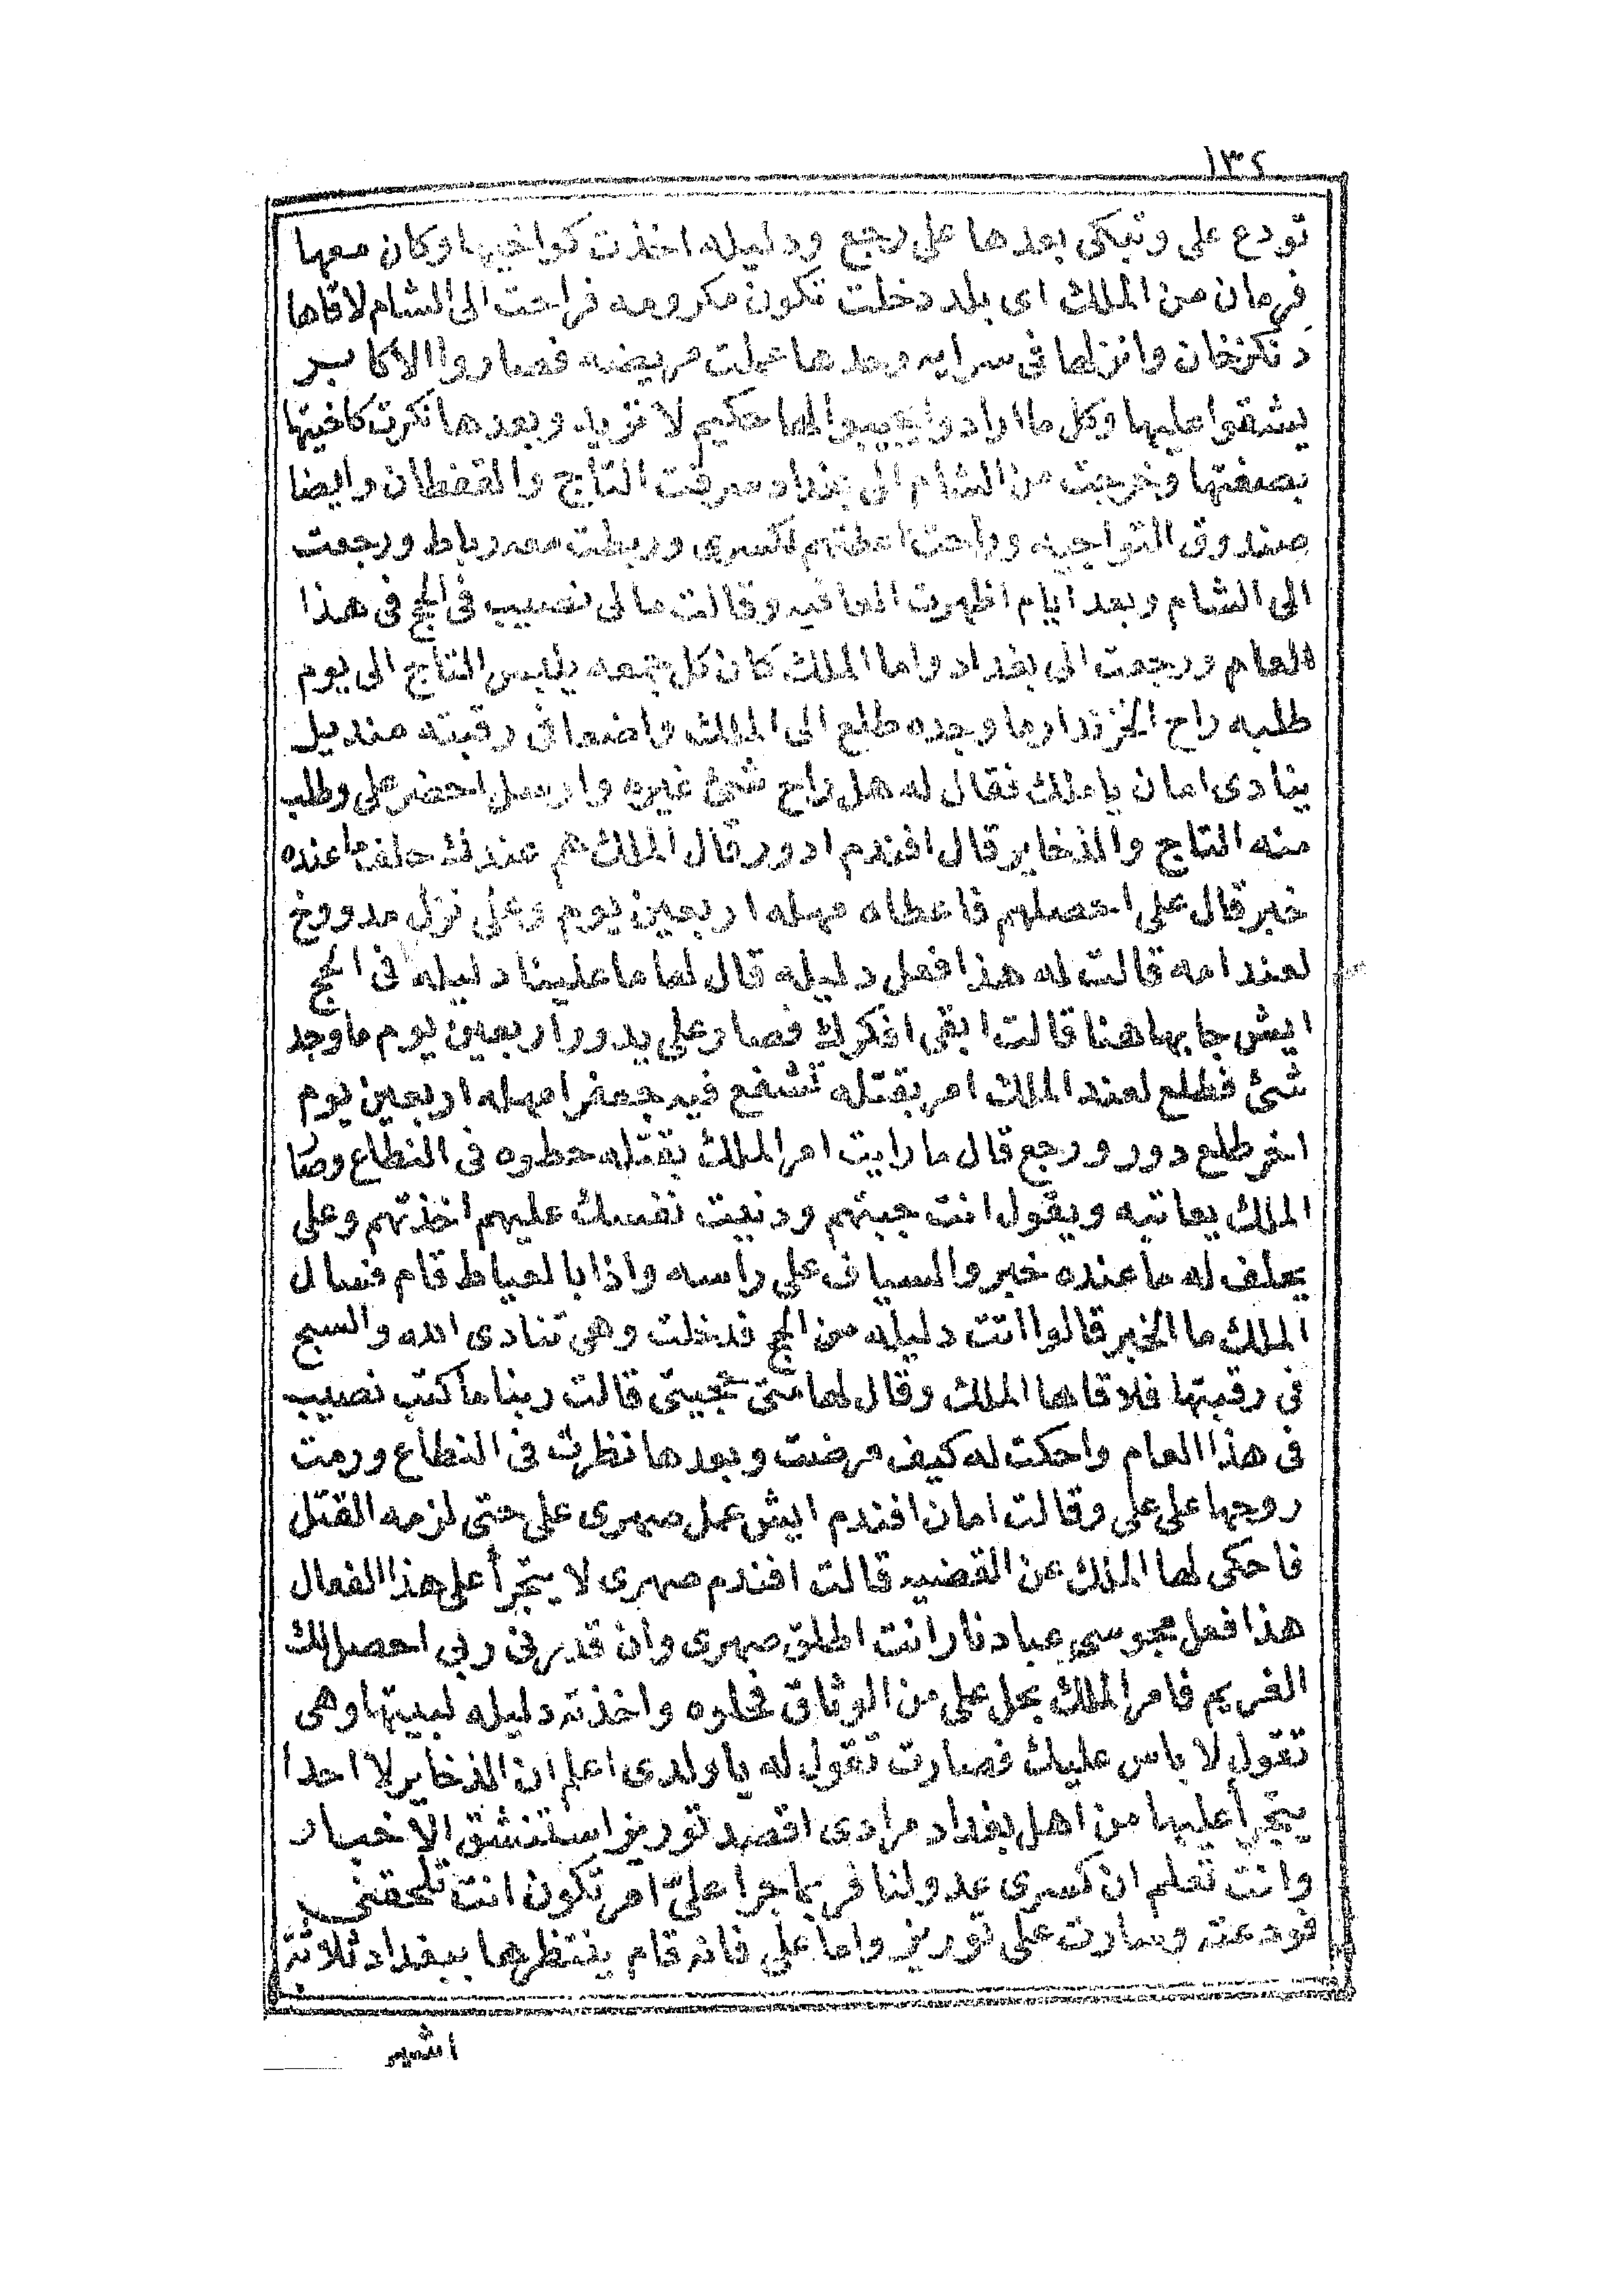 ١٣٤
تودع على وتبكى بعدها على رجع ودليله اخذت كواخيها وكان معها
فرمان من الملك اى بلد دخلت تكون مكرومه فراحت الى الشام لاقاها
دنكزخان وانزلها فى سرايه وحدها عملت مريضه فصاروا الاكابر
يشقوا عليها وكل ما ارادوا يجيبوا لها حكيم لا تريد وبعدها نكرت كاخيتها
بصفتها وخرجت من الشام الى بغداد سرقت التاج والقفطان وايضا
صندوق التواجيه وراحت اعطتهم لكسرى وربطت معه رباط ورجعت
الى الشام وبعد ايام اظهرت العافيه وقالت مالى نصيب فى الحج فى هذا
العام ورجعت الى بغداد واما الملك كان كل جمعه يلبس التاج الى يوم
طلبه راح الخزندار ما وجده طلع الى الملك واضعا فى رقبته منديل
ينادى امان يا ملك فقال له هل راح شئ غيره وارسل احضر على وطلب
منه التاج والذخاير قال افندم ادور قال الملك هم عندك حلف ما عنده
خبر قال على احصلهم فاعطاه مهله اربعين يوم وعلى نزل مدووخ
لعند امه قالت له هذا فعل دليله قال لها ما علينا دليله فى الحج
ايش جابها هنا قالت ابقى افكرك فصار على يدور اربعين يوم ما وجد
شئ فطلع لعند الملك امر بقتله تشفع فيه جعفر امهله اربعين يوم
اخر طلع دور ورجع قال ما رايت امر الملك بقتله حطوه فى النطاع وصا
الملك يعاتبه ويقول انت جبتهم ودنيت نفسك عليهم اخذتهم وعلى
يحلف له ما عنده خبر والسياف على رأسه واذا بالعياط قام فسال
الملك ما الخبر قالوا اتت دليله من الحج فدخلت وهى تنادى الله والسبح
فى رقبتها فلاقاها الملك وقال لها متى حجيتى قالت ربنا ما كتب نصيب
فى هذا العام واحكت له كيف مرضت وبعدها نظرت فى النطاع ورمت
روحها على على وقالت امان افندم ايش عمل صهرى على حتى لزمه القتل
فاحكى لها الملك عن القضيه قالت افندم صهرى لا يتجرأ على هذا الفعال
هذا فعل مجوسى عباد نار انت اطلق صهرى وان قدرنى ربى احصل لك
الغريم فامر الملك بحل على من الوثاق فحلوه واخذته دليله لبيتها وهى
تقول لا باس عليك فصارت تقول له يا ولدى اعلم ان الذخاير لا احدا
يتجرأ عليها من اهل بغداد مرادى اقصد توريز استنشق الاخبار
وانت تعلم ان كسرى عدو لنا فربما جرا علىّ امر تكون انت تلحقنى
فودعته وسارت على توريز واما على فانه قام ينتظرها ببغداد ثلاثة
اشهر